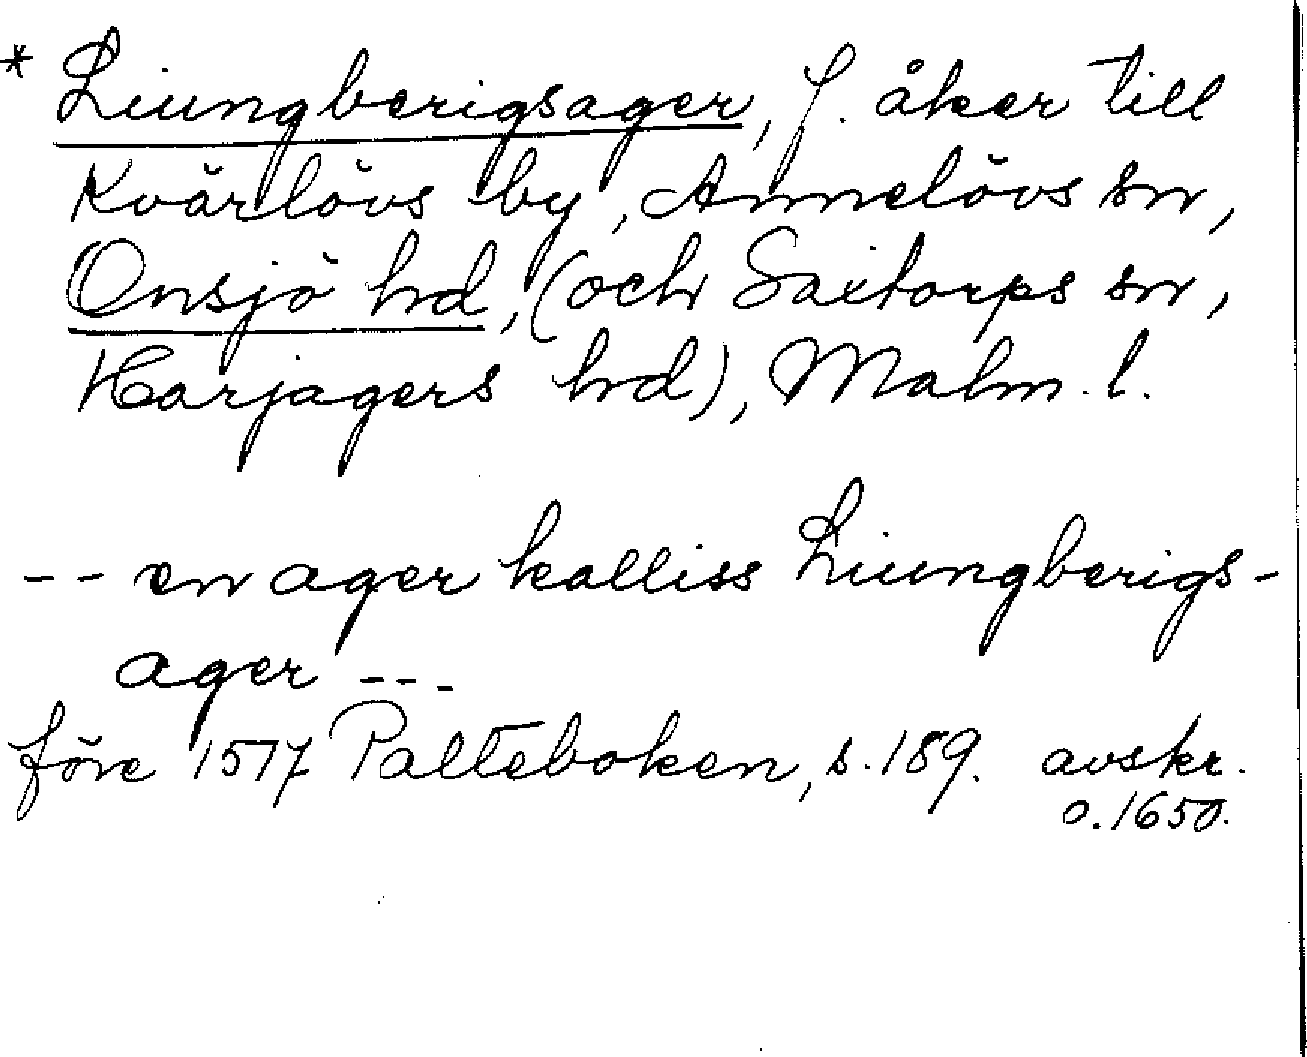 * Liungberigsager, f. åker till
Kvärlövs by, Annelövs sn,
Onsjö hd, (och Saxtorps sn,
Harjagers hd), Malm. l.
-- en ager kalliss Liungberigs-
ager ---
före 1517 Palteboken, s. 189. avskr.
o. 1650.